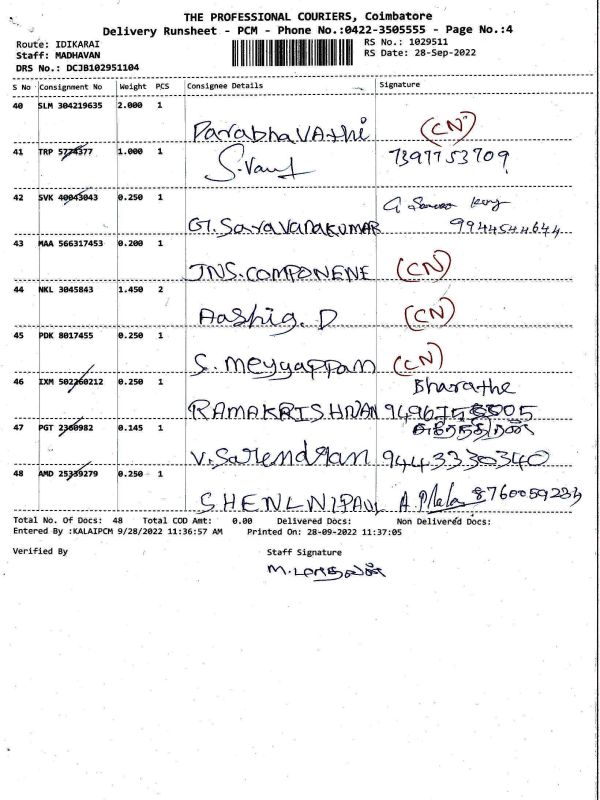 THE PROFESSIONAL COURIERS, Coimbatore
Delivery Runsheet - PCM - Phone No.:0422-3505555 - Page No.:4
Route: IDIKARAI RS No.: 1029511
Staff: MADHAVAN RS Date: 28-Sep-2022
DRS No.: DCJB102951104
S No Consignment No Weight PCS Consignee Details Signature
40 SLM 304219635 2.000 1
Parabhavathi (CN)
41 TRP 5774377 1.000 1 7397753709
42 SVK 40043043 0.250 1
GT. Saravanakumar 9944544644
43 MAA 566317453 0.200 1
JNS.COMPONENE (CN)
44 NKL 3045843 1.450 2
Aashig. D (CN)
45 PDK 8017455 0.250 1
S. meyyappan (CN)
46 IXM 502260212 0.250 1 Bharathe
RAMAKRISHNAN
47 PGT 2360982 0.145 1
V. Surendran 9443330340
48 AMD 25339279 0.250 1
8760059234
Total No. Of Docs: 48 Total COD Amt: 0.00 Delivered Docs: Non Delivered Docs:
Entered By :KALAIPCM 9/28/2022 11:36:57 AM Printed On: 28-09-2022 11:37:05
Verified By Staff Signature
M. மாதவன்